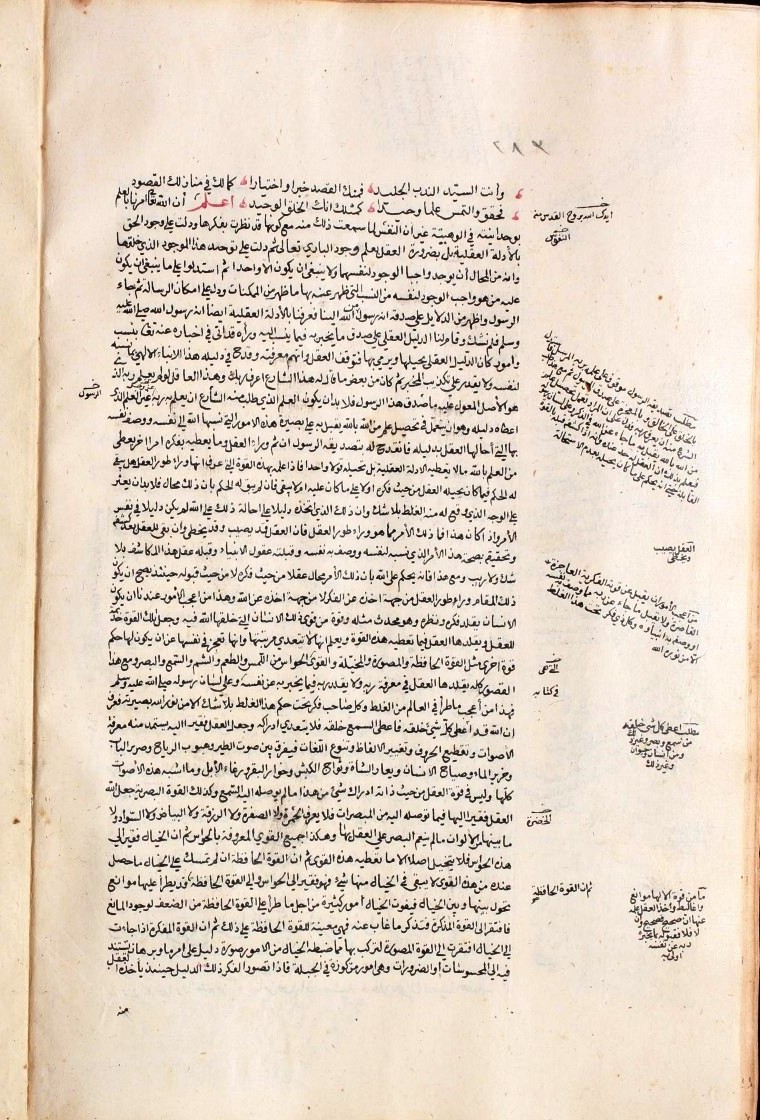 وأنت السيد الندب الجليد فمنك القصد خبرا واختيارا كمالك في منازلك القصود
فحقق والتمس علما وحيدا كمثلك انك الخلق الوحيد اعلم أن الله تعالى أمرنا بالعلم
بوحدانيته في ألوهيته غير أن النفس لما سمعت ذلك منه مع كونها قد نظرت بفكرها ودلت على وجود الحق
بالأدلة العقلية بل بضرورة العقل يعلم وجود الباري تعالى ثم دلت على توحيد هذا الموجود الذي خلقها
وانه من المحال أن يوجد واجبا الوجود لنفسهما ولا ينبغي ان يكون الا واحدا ثم استدلوا على ما ينبغي ان يكون
عليه من هو واجب الوجود لنفسه من النسب التي ظهر عنه بها ما ظهر من الممكنات ودل على امكان الرسالة ثم جاء
الرسول واظهر من الدلايل على صدقه انه رسول من الله الينا فعرفنا بالأدلة العقلية ايضا انه رسول الله صلى الله عليه
وسلم فلم نشك وقام لنا الدليل العقلي على صدق ما يخبر به فيما ينسب اليه وراه قد اتى في اخباره عنه تعالى بنسب
وامور كان الدليل العقلي يحيلها ويرمي بها فتوقف العقل واتهم معرفته وقدح في دليله هذا الانباء الالهي بما نسبه
لنفسه ولا يقدر على تكذيب المخبر ثم كان من بعض ما قال له هذا الشارع اعرف ربك وهذا العاقل لو لم يعلم ربه الذي
هو الأصل المعول عليه ما صدق هذا الرسول فلا بد ان يكون العلم الذي طلب منه الشارع ان يعلم به ربه غير العلم الذي
اعطاه دليله وهو ان يتعمل في تحصيل علم من الله بالله يقبل به على بصيرة هذه الامور التي نسبها الله الى نفسه ووصف نفسه
بها التي أحالها العقل بدليله فانقدح له بتصديقه الرسول ان ثم وراء العقل وما يعطيه بفكره امرا اخر يعطي
من العلم بالله ما لا يعطيه الادلة العقلية بل تحيله قولا واحدا فاذا علمه بهذه القوة التي عرف انها وراء طور العقل هل يبقى
له الحكم فيما كان يحيله العقل من حيث فكره اولا على ما كان عليه او لا يبقى فان لم يبق له الحكم بان ذلك محال فلا بد ان يعثر
على الوجه الذي وقع له منه الغلط بلا شك وان ذلك الذي اتخذه دليلا على احالة ذلك على الله لم يكن دليلا في نفس
الامر واذا كان هذا فما ذلك الامر مما هو وراء طور العقل فان العقل قد يصيب وقد يخطي وان بقي للعقل بعد كشفه
وتحقيقه بصحة هذا الامر الذي نسبه لنفسه ووصف به نفسه وقبلته عقول الانبياء وقبله عقل هذا المكاشف بلا
شك ولا ريب ومع هذا فانه يحكم على الله بان ذلك الامر محال عقلا من حيث فكره لا من حيث قبوله حينئذ يصح ان يكون
ذلك المقام وراء طور العقل من جهة اخذه عن الفكر لا من جهة اخذه عن الله وهذا من اعجب الامور عندنا ان يكون
الانسان يقلد فكره ونظره وهو محدث مثله وقوة من قوى الانسان التي خلقها الله فيه وجعل تلك القوة خديمة
للعقل ويقلدها العقل فيما تعطيه هذه القوة ويعلم انها لا تتعدى مرتبتها وانها تعجز في نفسها عن ان يكون لها حكم
قوة اخرى مثل القوة الحافظة والمصورة والمخيلة والقوى الحواس من اللمس والطعم والشم والسمع والبصر ومع هذا
القصور كله يقلدها العقل في معرفة ربه ولا يقلد ربه فيما يخبر به عن نفسه وعلى لسان رسوله صلى الله عليه وسلم
فهذا من أعجب ما طرأ في العالم من الغلط وكل صاحب فكر تحت حكم هذا الغلط بلا شك الا من نور الله بصيرته فعرف
ان الله قد اعطى كل شيء خلقه فاعطى السمع خلقه فلا يتعدى ادراكه وجعل العقل فقيرا اليه يستمد منه معرفة
الأصوات وتقطيع الحروف وتغيير الالفاظ وتنوع اللغات فيفرق بين صوت الطير وهبوب الرياح وصرير الباب
وخرير الماء وصياح الانسان ويعار الشاة وثواج الكبش وخوار البقر ورغاء الابل وما اشبه هذه الأصوات
كلها وليس في قوة العقل من حيث ذاته ادراك شيء من هذا ما لم يوصله اليه السمع وكذلك القوة البصرية جعل الله
العقل فقيرا اليها فيما توصله اليه من المبصرات فلا يعرف الخمرة ولا الصفرة ولا الزرقة ولا البياض ولا السواد ولا
ما بينهما من الالوان ما لم ينعم البصر على العقل بها وهكذا جميع القوى المعروفة بالحواس ثم ان الخيال فقير الى
هذه الحواس فلا يتخيل اصلا الا ما تعطيه هذه القوى ثم ان القوة الحافظة ان لم تمسك على الخيال ما حصل
عنده من هذه القوى لا يبقى في الخيال منها شيء فهو فقير الى الحواس والى القوة الحافظة قد يطرأ عليها موانع
تحول بينها وبين الخيال فيفوت الخيال أمور كثيرة من اجل ما طرأ على القوة الحافظة من الضعف لوجود المانع
فافتقر الى القوة المذكرة فتذكره ما غاب عنه فهي معينة للقوة الحافظة على ذلك ثم ان القوة المفكرة اذا جاءت
الى الخيال افتقرت الى القوة المصورة لتركب بها مما ضبطه الخيال من الامور صورة دليل على امر ما وبرهان يستند
فيه الى المحسوسات أو الضرورات وهي امور مركوزة في الجبلة فاذا تصور الفكر ذلك الدليل حينئذ يأخذه العقل
منه
ايدك الله بروح القدس منه
النفوس
الرسول
العقل يصيب
ويخطي
في كتابه
مطلب اعطى كل شيء خلقه
من سمع وبصر وغيره
ومن انسان وحيوان
وغير ذلك
الخضرة
ثم ان القوة الحافظة
ما من قوة الا لها موانع